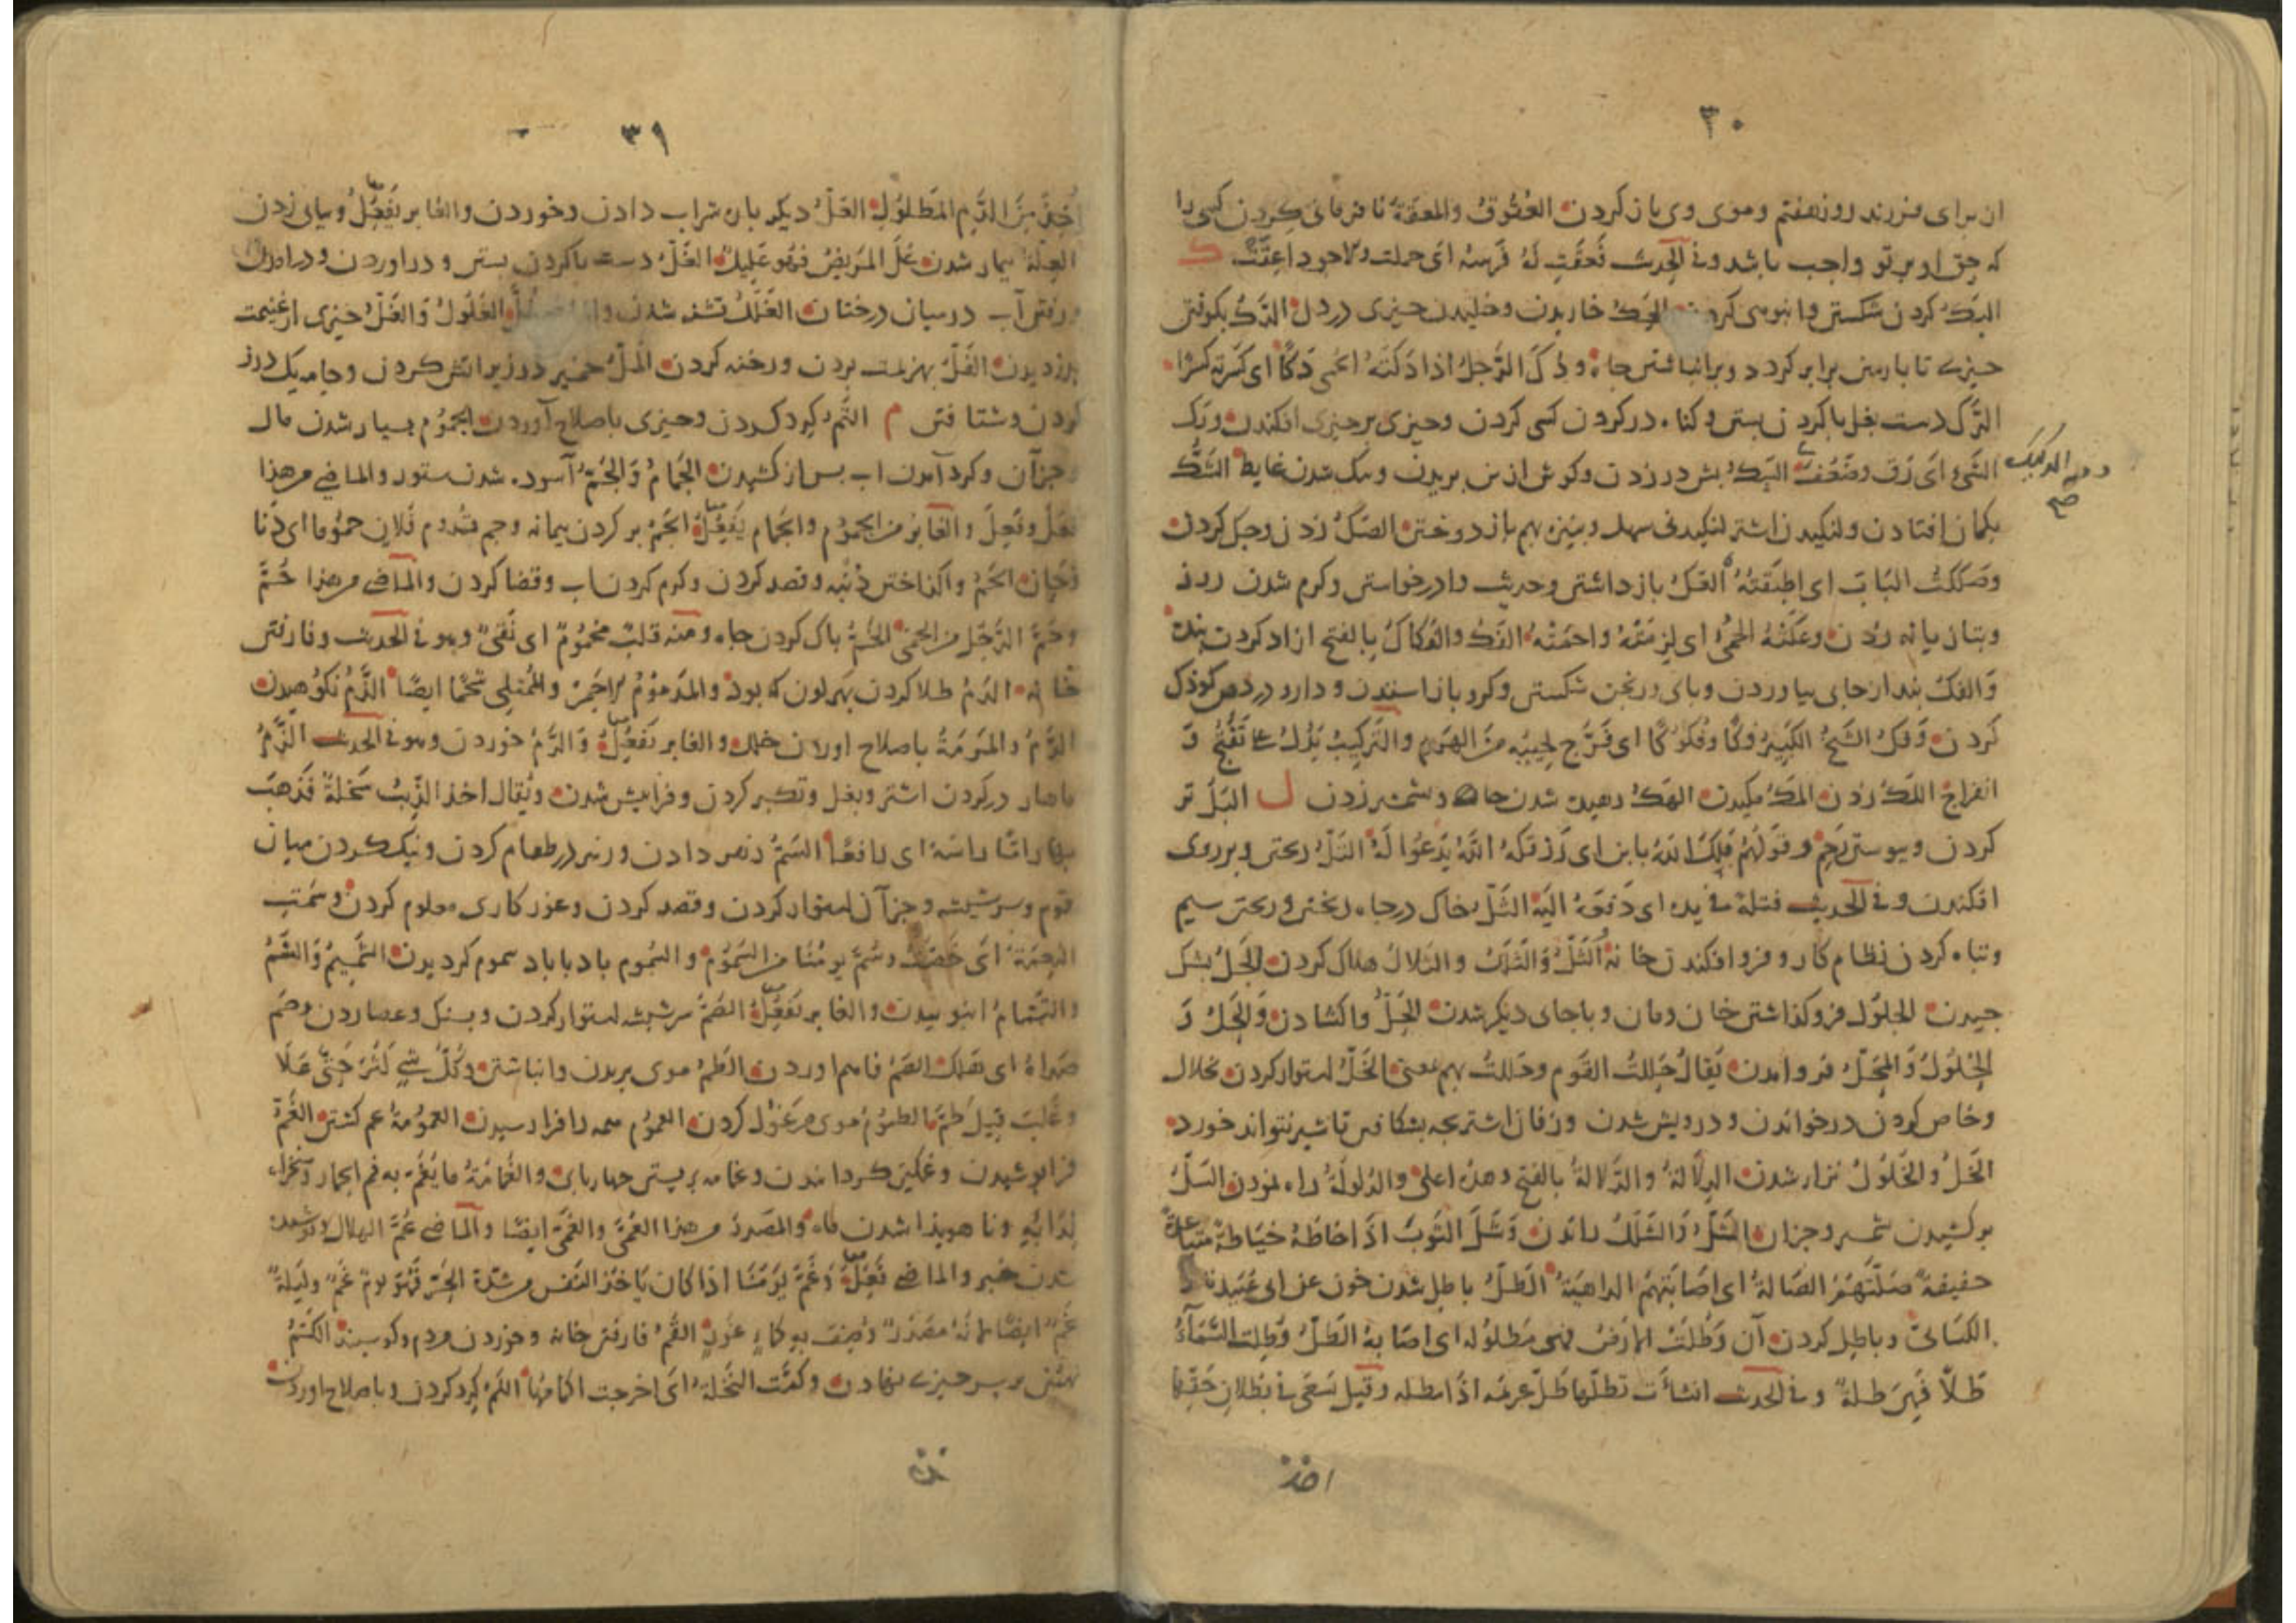 ۳۰
ان برای فرزند روز هفتم وموی وی باز کردن العُقُوقُ والمعَقّةُ نا فرمانی کردن کسی را
که حق او بر تو واجب باشد وفی الحدیث ک
البَکّ کردن شکستن وانبوهی کردن الحَکّ خاریدن وخلیدن چیزی در دل الدَّکّ بکوفتن
چیزے تا با زمین برابر کردد وبرانباشتن چاه وذُکَّ الرَّجلُ اذا دَکَتْهُ الحُمّی دَکًّا ای کَسَرَته کسْرًا
الرَّکّ دست بغل با کردن بستن در کردن کسی کردن وچیزی بر چیزی افکندن ورَکّ
الشَّیءُ ای رَقّ وضَعُفَ السَّکّ بش در زدن وکوش از بن بریدن وسک شدن غایط الشَّکّ
بکمان افتادن ولنکیدن اشتر لنکیدنی سهل وبنیزه بهم باز دوختن الصَّکّ زدن وچک کردن
وصَکَکْتُ البَابَ ای اطبَقتُهُ العَکّ باز داشتن وحدیث وا درخواستن وکرم شدن روز
وبتازیانه زدن وعَکَّتْهُ الحُمّیٰ ای لزِمَتْهُ واحمَتْهُ الفَکّ والفکاکُ بالفتح ازاد کردن بنده
وَالفکّ بند از جای بیاوردن وبای ورنجن شکستن وکرو باز استدن ودارو در دهن کوذک
کَردن وَفَکَّ الشَّیخُ الکَبِیرُ فَکًّا وفُکوکًا ای فَرَّجَ لحیَیْهِ مِنَ الهَرَمِ والتَّرکیبُ یَدُلّ علی تَفَتُّحٍ وَ
انفراج اللَّکّ زدن المَکّ مکیدن الهَکّ شدن چاه وشمشیر زدن ل البَلّ تر
کردن وپیوستن رَحِم وقَولُهُم بَلّکَ اللهُ بابن ای رَزَقکَهُ اللهُ یَدعُوا لَهُ التَلّ ریختن وبر روی
افکندن وفی الحدیث فتلّهُ فی یده ای دَفَعَهُ الَیه الثَلّ خاک در چاه ریختن وریختن سیم
وتباه کردن نظام کار وفرو افکندن خانه الثَلّ وَالثَّلَلُ والثلالُ هلاک کردن الجَلّ بشک
چیدن الجلُولُ فرو کذاشتن خان ومان وبا جای دیکر شدن الحَلّ واکشادن وَالحَلّ وَ
الحُلُولُ وَالمَحَلّ فرو امدن یُقالُ حَلَلتُ القَومَ وحَلَلتُ بهم بمعنی الخَلّ استوار کردن بخلال
وخاص کردن در خواندن ودرویش شدن وزفان اشتر بچه بشکافتن تا شیر نتواند خورد
الخَلّ والخُلُولُ نزار شدن الدِلالَةُ والدَّلالةُ بالفتح وهذه اعلی والدُلولَةُ راه نمودن السَلّ
برکشیدن شمشیر وجز ان الشَلّ وَالشَّلَلُ راندن وَشَلَّ الثَّوبَ اذَا خاطَهُ خیَاطةً متباعدةً
خفیفةً صَلَّتهُمُ الصَّالةُ ای اصَابَتهُم الداهیَةُ الطَلّ باطل شدن خون عن ابی عُبَیدة
الکسَائی وباطل کردن آن وطُلَّت الارضُ فهی مَطلولَة ای اصَابَهُ الطَلّ وَطَلَّت السَّمَآءُ
طَلًّا فَهِیَ طلةٌ وفی الحدیث انشأت تطلّها طَلّ غریمَه اذَا مطله وقیل سَعَی فی بُطلانِ حَقّها
اخذ
۳۱
اُخِذَ مِنَ الدَّمِ المَطلُولِ العَلّ دیکر بار شراب دادن وخوردن والغابر یَفعُلُ وبیای زدن
العِلّةُ بیمار شدن عُلَّ المَریضُ فهُو عَلِیلٌ الغَلّ دست با کردن بستن ودر اوردن ودر امدن
ورفتن آب در میان درختان الغَلَلُ تشنه شدن الغُلُولُ وَالغَلّ چیزی از غنیمت
بدزدیدن الفَلّ بهزیمت بردن ورخنه کردن المَلّ خمیر در زیر اتش کردن وجامه یک درز
کردن وشتافتن م الثَّم کرد کردن وچیزی باصلاح آوردن الجُمُوم بسیار شدن مال
وجز آن وکرد آمدن اب بس از کشیدن الجَمَامُ وَالجَمّ آسوده شدن ستور والماضی من هذا
فَعَلَ وفَعِلَ والغابرُ من الجموم والجمام یَفعُلُ الجَمّ بر کردن پیمانه وجم قدوم فُلان جمُوما ای دَنا
وحَان الحَمّ واکداختن دنبه وقصد کردن وکرم کردن اب وقضا کردن والماضی من هذا حُمَّ
وحُمَّ الرَّجُل من الحمّی الخَمّ پاک کردن چاه ومنه قلبٌ مخمُومٌ ای نَقِیٌّ وهو فی الحدیث وفا رفتن
خانه الدَمّ طلا کردن بهر لون که بود والمَدمُومُ الاحمَرُ والمُمتلِی شَحمًا ایضًا الذَمّ نکوهیدن
الرَّمّ والمَرَمّةُ باصلاح اوردن خلل والغابر یَفعُلُ وَالرَّمّ خوردن وهو فی الحدیث الزَّمّ
ماهار در کردن اشتر وبغل وتکبر کردن وفرا پیش شدن ویُقال اخذ الذِّئبُ سَخلةً فَذَهَبَ
بها زامًّا راسَهُ ای رافعًا السَّمّ زهر دادن وزهر در طعام کردن ونیک کردن میان
قوم وسر شیشه وجز آن استوار کردن وقصد کردن وغور کاری معلوم کردن وسَمَّتِ
النِعمَةُ ای خَصَّتْ وسُمَّ یومُنا من السَّمُوم والسُموم باد باباد سموم کردیدن الشَّمیمُ وَالشَّمّ
والتَّشمَامُ انبوییدن والغابر یَفعُلُ الصَمّ سر شیشه استوار کردن وبسنک وعصا زدن وصَمَّ
صَداهُ ای هَلَک الضَمّ فاهم اوردن الطَمّ موی بریدن وانباشتن وکُلّ شَیءٍ کَثُرَ حَتّیٰ عَلَا
وغَلَبَ قِیلَ طَمَّ الطُمُوم موی مرغول کردن العمُوم همه را فرا رسیدن العمُومَةُ عم کشتن الغَمّ
فرا پوشیدن وغمکین کردانیدن وغمامه بر بستن چهارپای والغِمَامَةُ ما یُغَمّ به فم الحمار
لِدَابّهِ ونا هویذا شدن ماه والمَصدرُ من هذا الغَمّیَ والغُمّیٰ ایضًا والماضی غُمَّ الهلال وپوشیده
شدن خبر والماضی فُعِلَ وَغَمَّ یَومُنَا اذَا کان یَاخُذ النَفَس من شدّة الحَرّ فَهُوَ یومٌ غَمٌّ ولَیلةٌ
غَمٌّ ایضًا لانه مَصدرٌ وُصِفَ بهِ کماءٍ غَورٍ القَمّ فا رفتن خانه وخوردن مردم وکوسبند الکَمّ
بر سر چیزے نهادن وکمَّت النَخلَةُ ای اخرجت اکمامَها اللَمّ کرد کردن وباصلاح اوردن